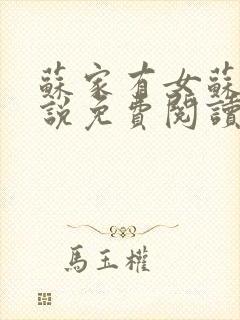 蘇家有女蘇
說免費閱讀
馬玉權